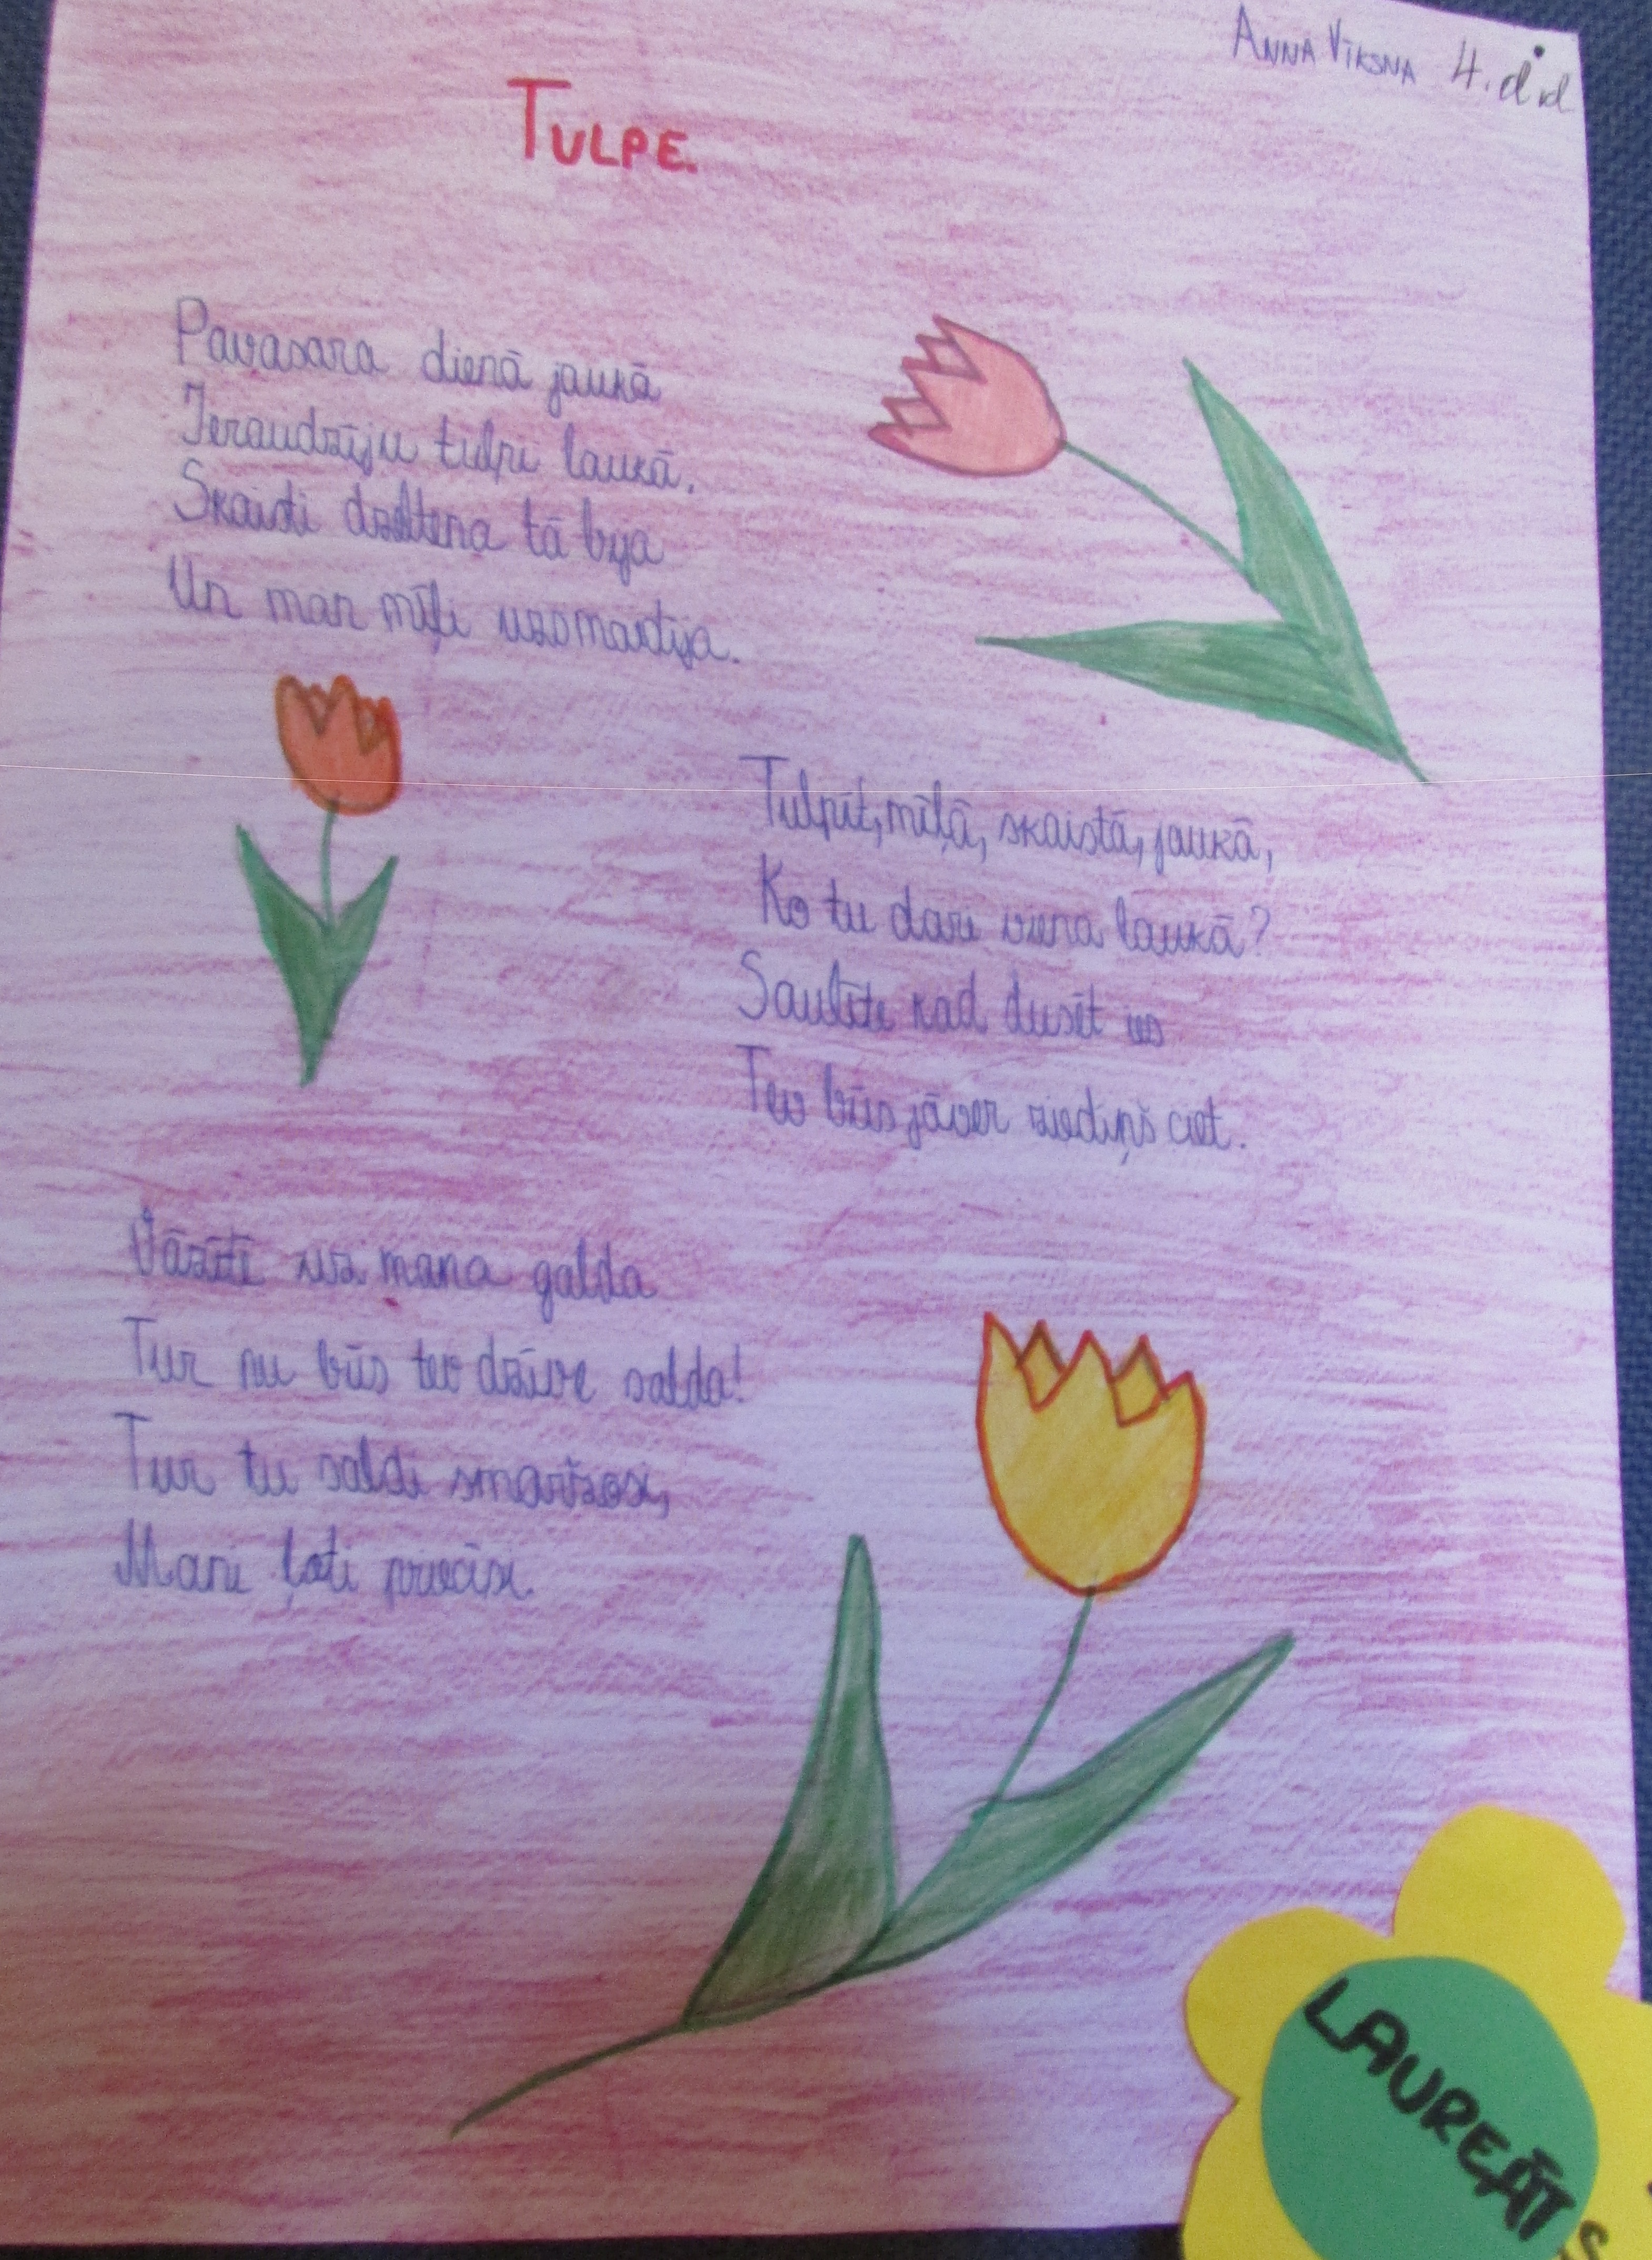 ANNA VĪKSNA 4. d
TULPE.
Pavasara dienā jaukā
Ieraudzīju tulpi laukā.
Skaisti dzeltena tā bija
Un man mīļi uzsmaidīja.
Tulpīt, mīļā, skaistā, jaukā,
Ko tu dari viena laukā?
Saulīte kad dusēt ies
Tev būs jāver ziediņš ciet.
Vāzītē uz mana galda
Tur nu būs tev dzīve salda!
Tur tu saldi smaržosi,
Mani ļoti priecēsi.
LAUREĀTS